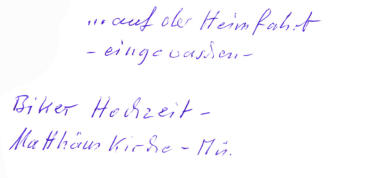 ...auf der Heimfahrt
- eingewaschen -
Biker Hochzeit -
Matthäus Kirche - Mü.